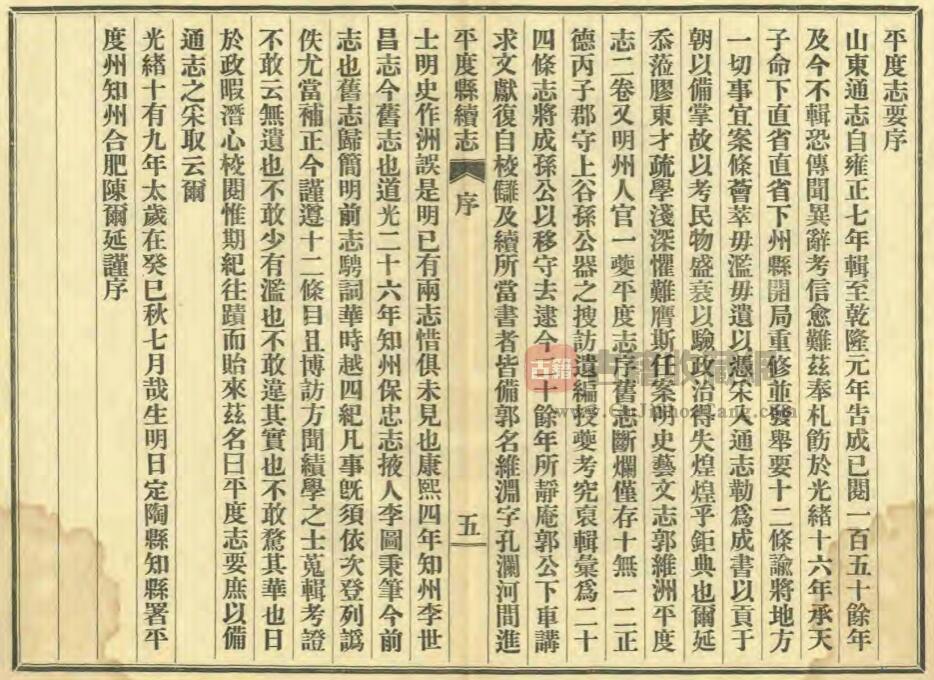 平度志要序
山東通志自雍正七年輯至乾隆元年告成已閱一百五十餘年
及今不輯恐傳聞異辭考信愈難茲奉札飭於光緒十六年承天
子命下直省直省下州縣開局重修並發舉要十二條諭將地方
一切事宜案條薈萃毋濫毋遺以憑采入通志勒爲成書以貢于
朝以備掌故以考民物盛衰以驗政治得失煌煌乎鉅典也爾延
忝蒞膠東才疏學淺深懼難膺斯任案明史藝文志郭維洲平度
志二卷又明州人官一夔平度志序舊志斷爛僅存十無一二正
德丙子郡守上谷孫公器之搜訪遺編授夔考究裒輯彙爲二十
四條志將成孫公以移守去逮今二十餘年所靜庵郭公下車講
求文獻復自校讎及續所當書者皆備郭名維淵字孔瀾河間進
平度縣續志
序
五
士明史作洲誤是明已有兩志惜俱未見也康熙四年知州李世
昌志今舊志也道光二十六年知州保忠志掖人李圖秉筆今前
志也舊志歸簡明前志騁詞華時越四紀凡事既須依次登列譌
佚尤當補正今謹遵十二條目且博訪方聞績學之士蒐輯考證
不敢云無遺也不敢少有濫也不敢違其實也不敢騖其華也日
於政暇潛心校閱惟期紀往蹟而貽來茲名曰平度志要庶以備
通志之采取云爾
光緒十有九年太歲在癸巳秋七月哉生明日定陶縣知縣署平
度州知州合肥陳爾延謹序
古籍
www.GuJiShouCang.com